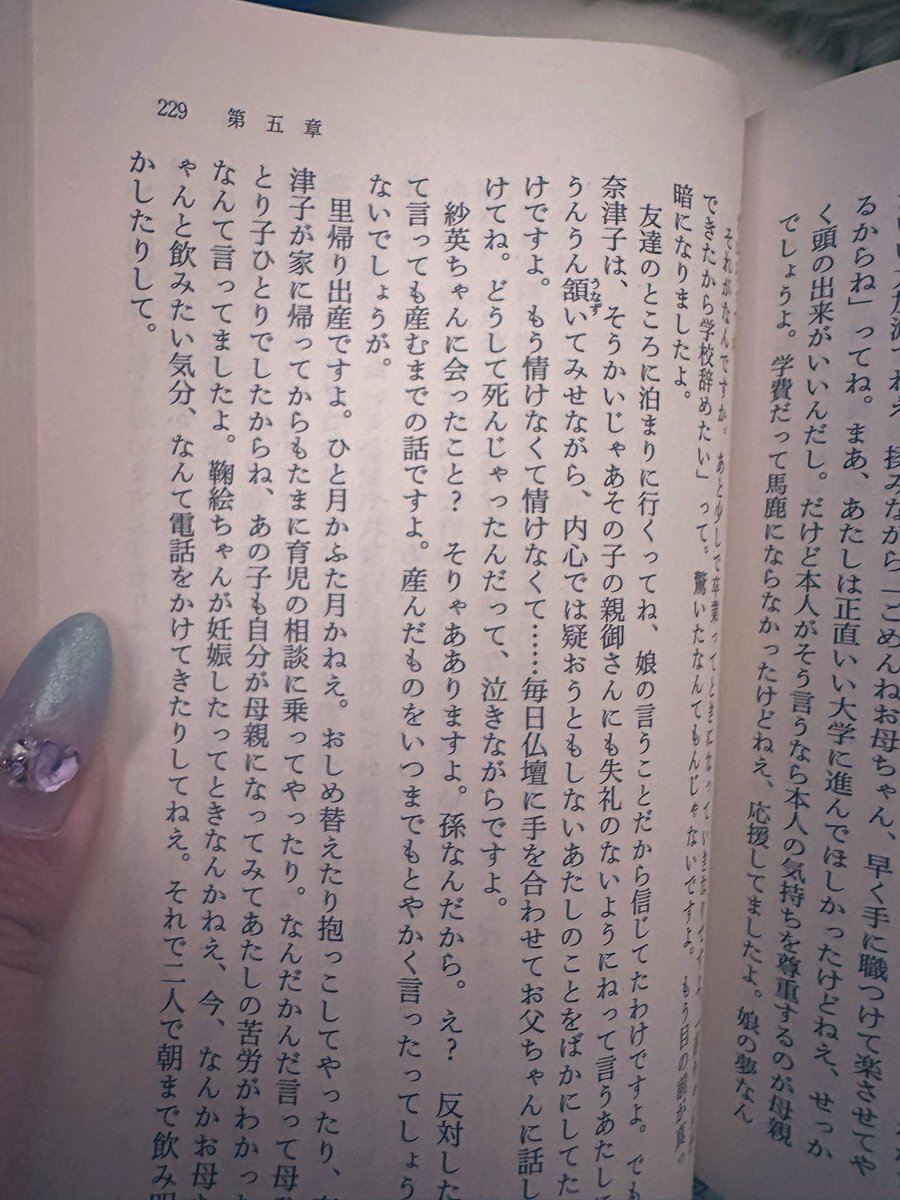 揉みながら「ごめんねお母ちゃん、早く手に職つけて楽させてや
るからね」ってね。まあ、あたしは正直いい大学に進んでほしかったけどねえ、せっか
く頭の出来がいいんだし。だけど本人がそう言うなら本人の気持ちを尊重するのが母親
でしょうよ。学費だって馬鹿にならなかったけどねえ、応援してましたよ。娘の夢なん
229 第五章
それがなんですか。あと少しで卒業ってときになっていきなり
できたから学校辞めたい」って。驚いたなんてもんじゃないですよ。もう目の前が真っ
暗になりましたよ。
友達のところに泊まりに行くってね、娘の言うことだから信じてたわけですよ。でも
奈津子は、そうかいじゃあその子の親御さんにも失礼のないようにねって言うあたしに
うんうん頷いてみせながら、内心では疑おうともしないあたしのことをばかにしてた
けですよ。もう情けなくて情けなくて……毎日仏壇に手を合わせてお父ちゃんに話し
けてね。どうして死んじゃったんだって、泣きながらですよ。
紗英ちゃんに会ったこと? そりゃありますよ。孫なんだから。え? 反対した
て言っても産むまでの話ですよ。産んだものをいつまでもとやかく言ったってしょう
ないでしょうが。
里帰り出産ですよ。ひと月かふた月かねえ。おしめ替えたり抱っこしてやったり、
津子が家に帰ってからもたまに育児の相談に乗ってやったり。なんだかんだ言って母
とり子ひとりでしたからね、あの子も自分が母親になってみてあたしの苦労がわかっ
なんて言ってましたよ。鞠絵ちゃんが妊娠したってときなんかねえ、今、なんかお母
ゃんと飲みたい気分、なんて電話をかけてきたりしてねえ。それで二人で朝まで飲み明
かしたりして。